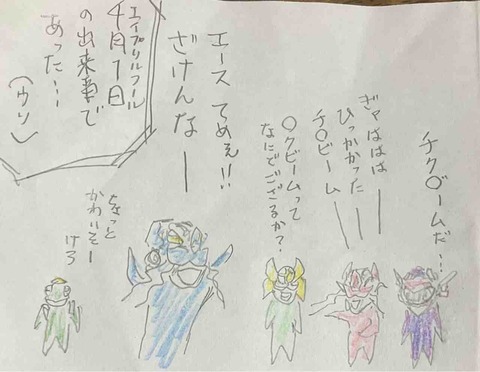 チク〇ームだ…
ぎゃははは
ひっかかったーー
チ〇ビームーー
〇クビームって
なにでござるか?
エース てめぇ!!
ざけんなー
エイプリルフール
4月1日
の出来事で
あった…
(ウソ)
ちょっと
かわいそー
けろ